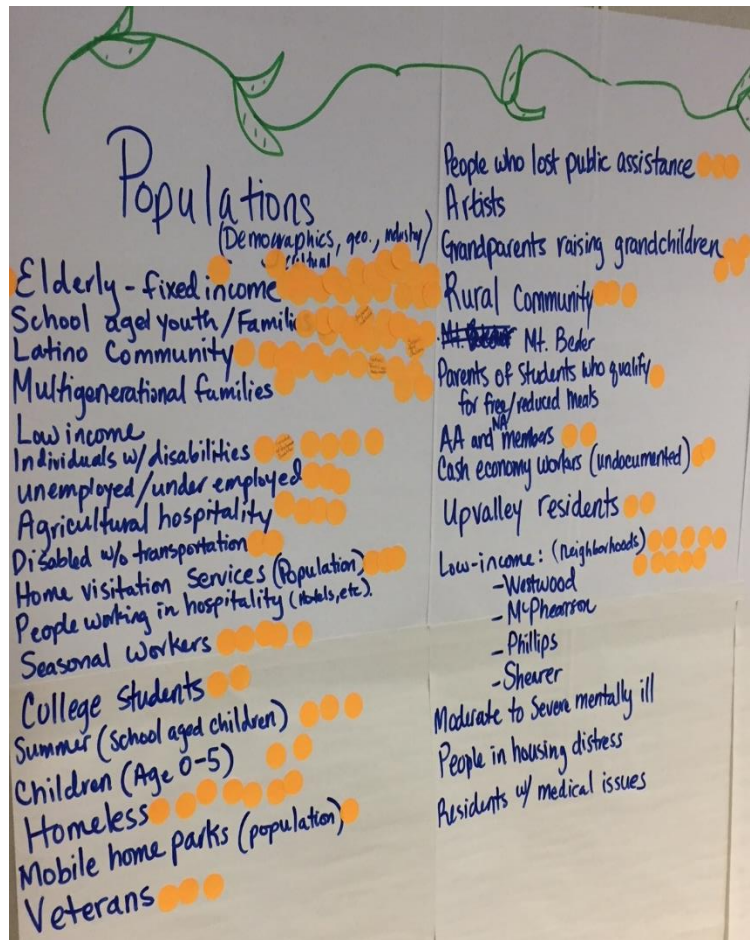 Populations
(Demographics, geo., industry)
cultural
Elderly - fixed income
School aged youth/Families
Latino Community
Multigenerational families
Low income
Individuals w/ disabilities
unemployed/under employed
Agricultural hospitality
Disabled w/o transportation
Home visitation services (Population)
People working in hospitality (Hotels, etc).
Seasonal workers
College students
Summer (School aged children)
Children (Age 0-5)
Homeless
Mobile home parks (population)
Veterans
People who lost public assistance
Artists
Grandparents raising grandchildren
Rural Community
Mt. Beder
Parents of Students who qualify
for free/reduced meals
AA and NA members
Cash economy workers (undocumented)
Upvalley residents
Low-income: (neighborhoods)
-Westwood
-McPhearson
-Phillips
-Shearer
Moderate to Severe mentally ill
People in housing distress
Residents w/ medical issues